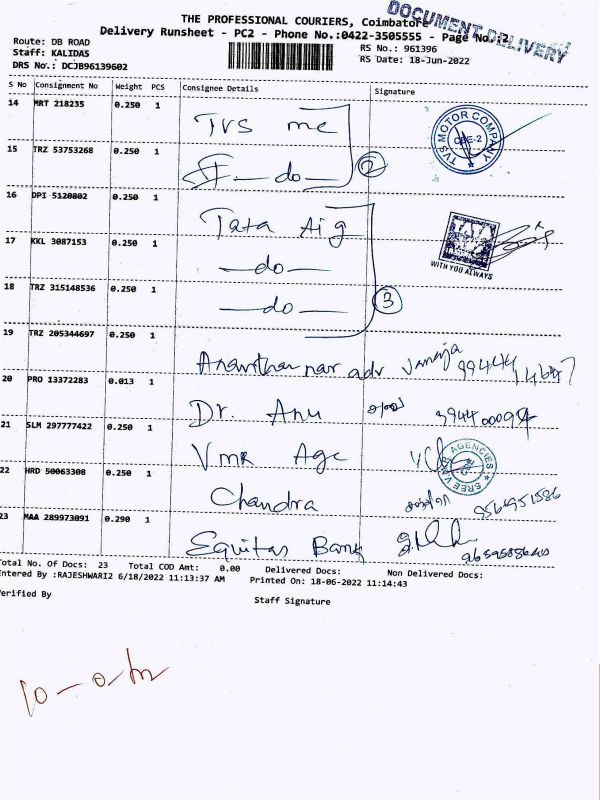 DOCUMENT DELIVERY
THE PROFESSIONAL COURIERS, Coimbatore
Delivery Runsheet - PC2 - Phone No.:0422-3505555 - Page No.:2
Route: DB ROAD
RS No.: 961396
Staff: KALIDAS
RS Date: 18-Jun-2022
DRS No.: DCJB96139602
S No Consignment No Weight PCS Consignee Details Signature
14 MRT 218235 0.250 1 TVS mc
TVS MOTOR COMPANY
CBE-2
15 TRZ 53753268 0.250 1 do 2
16 DPI 5120802 0.250 1 Tata Aig
17 KKL 3087153 0.250 1 do
WITH YOU ALWAYS
18 TRZ 315148536 0.250 1 do 3
19 TRZ 205344697 0.250 1
20 PRO 13372283 0.013 1 Dr. Anu
21 SLM 297777422 0.250 1 Vmr Age
SREE AGENCIES
22 HRD 50063308 0.250 1 Chandra
23 MAA 289973091 0.290 1 Equitas Bank
Total No. Of Docs: 23 Total COD Amt: 0.00 Delivered Docs: Non Delivered Docs:
Entered By :RAJESHWARI2 6/18/2022 11:13:37 AM Printed On: 18-06-2022 11:14:43
Verified By
Staff Signature